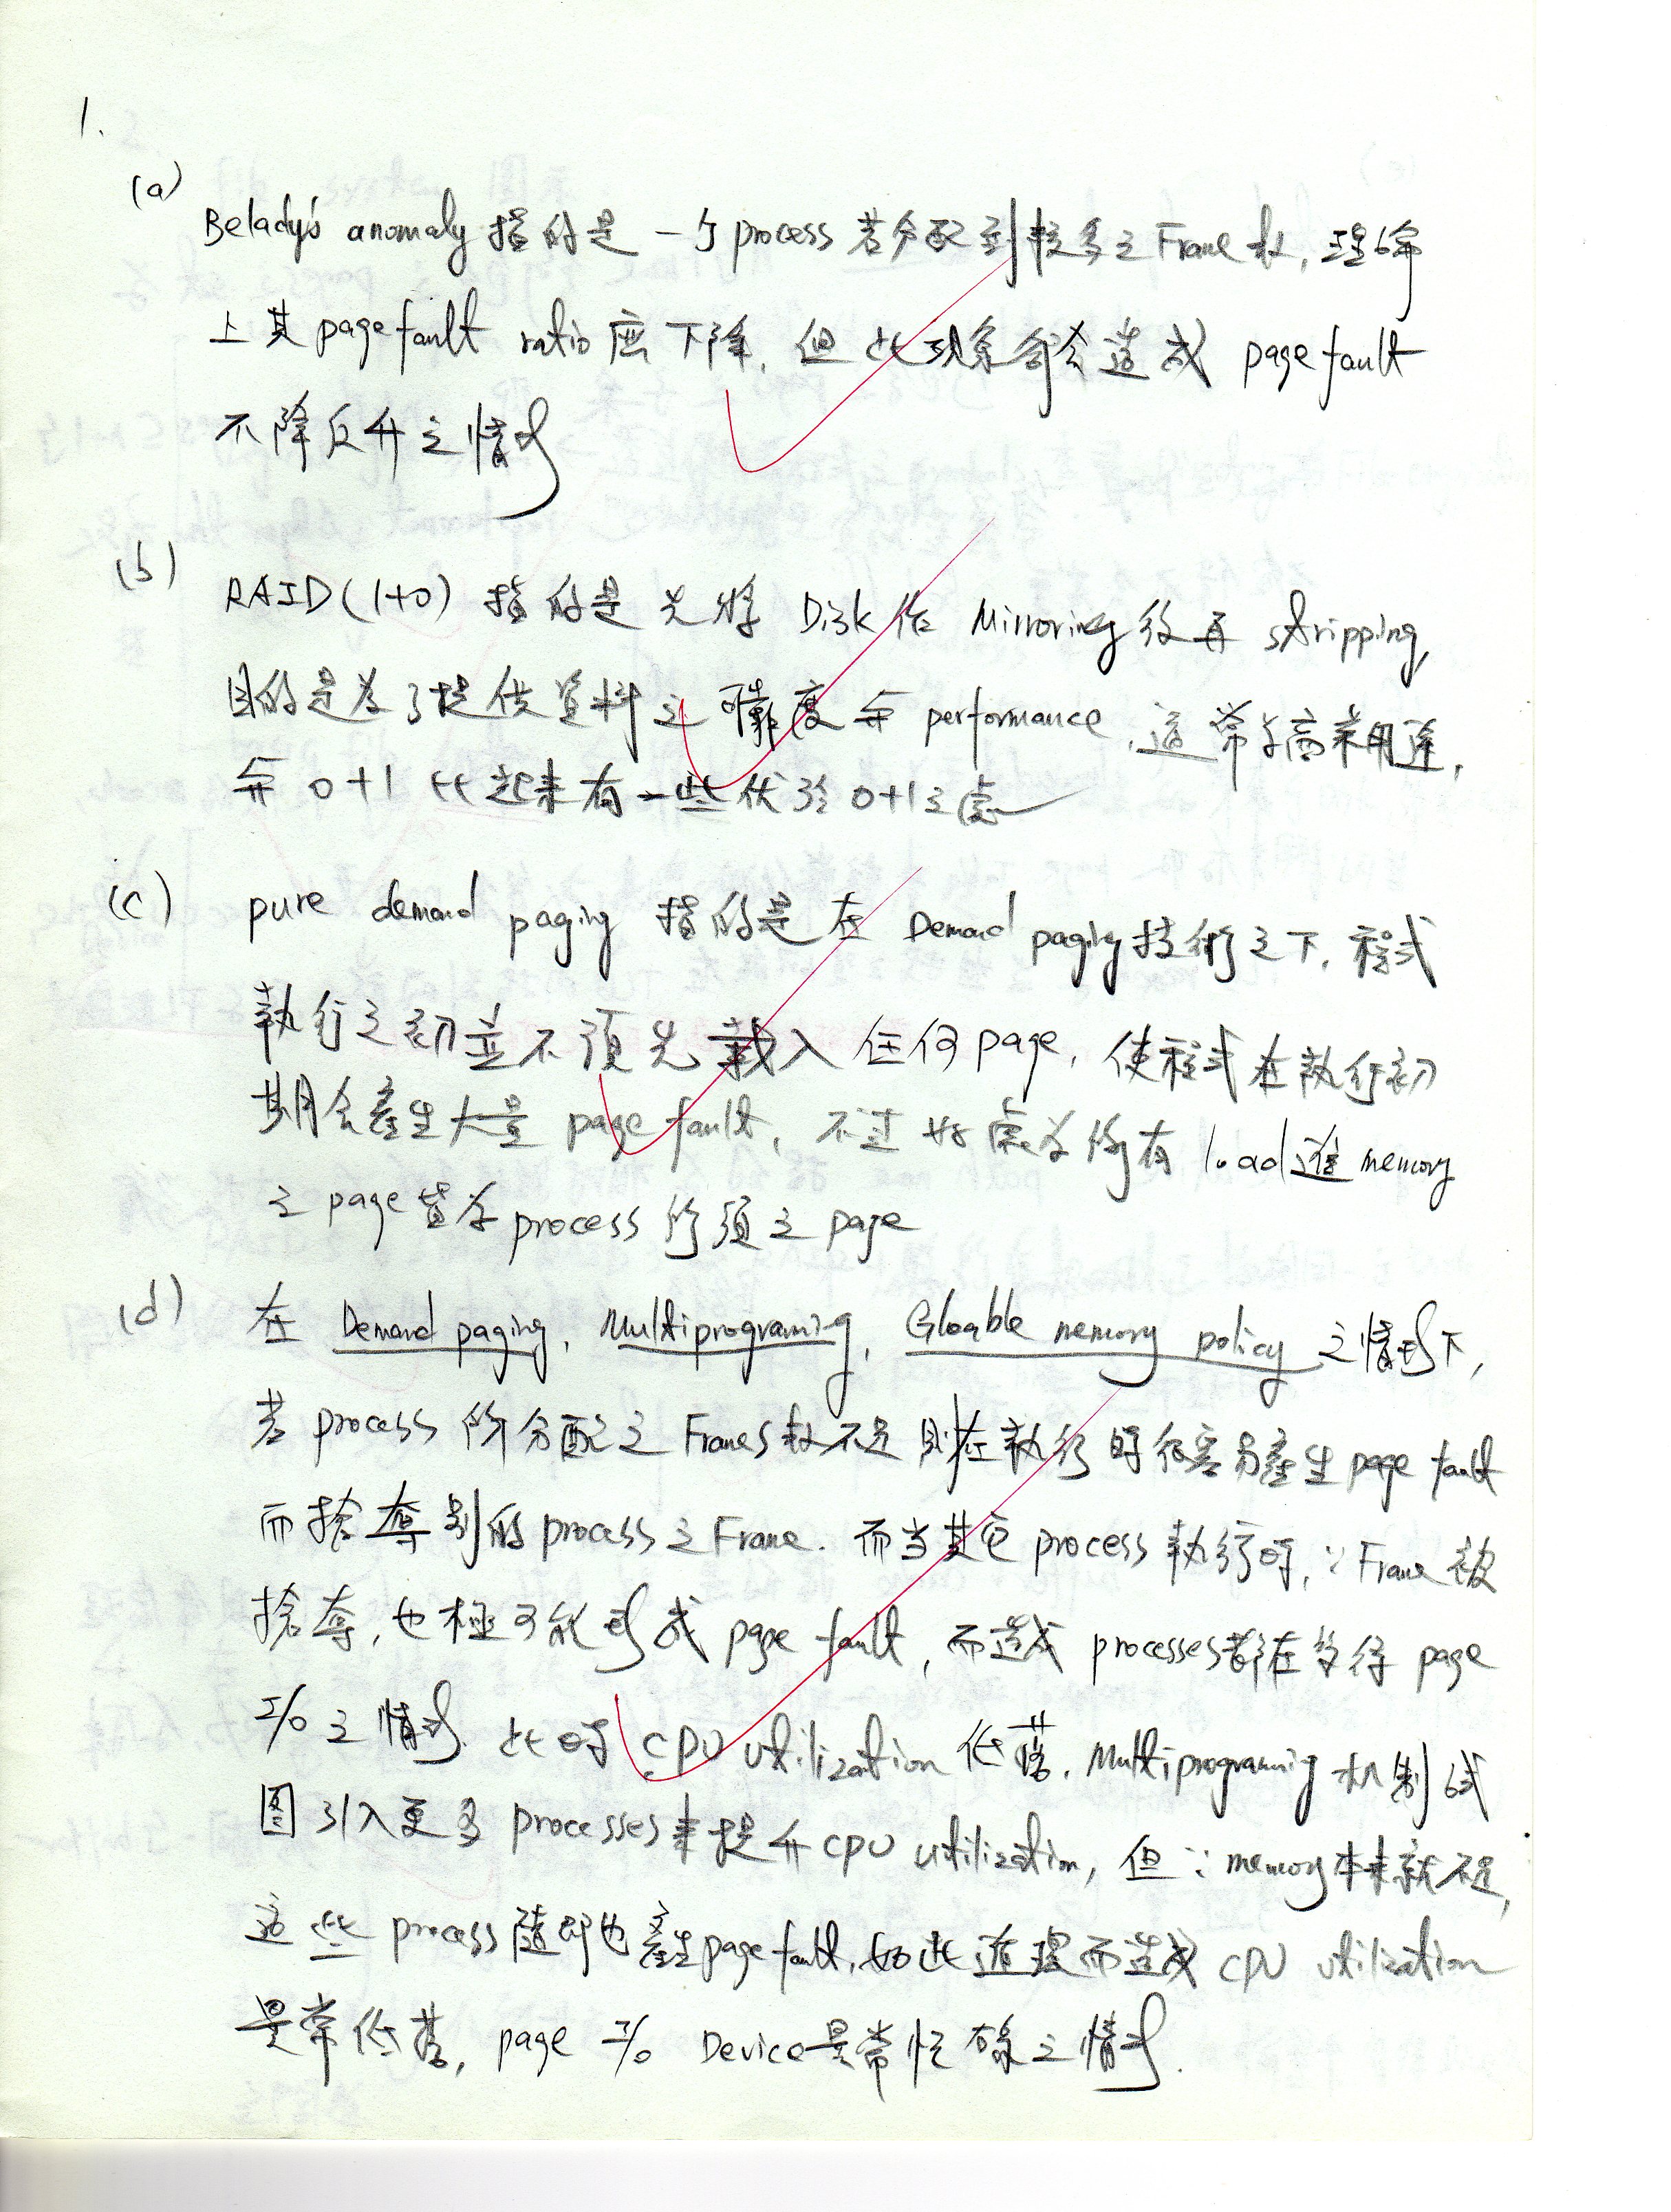 1.
(a)
Belady's anomaly 指的是一个process若分配到較多之Frame數,理論
上其page fault ratio應下降,但此現象卻會造成 page fault
不降反升之情形
(b)
RAID(1+0) 指的是先將 Disk 作 Mirroring 後再 stripping,
目的是為了提供資料之可靠度與 performance,這常為商業用途,
與 0+1 比起來有一些優於 0+1之處
(c) pure demand paging 指的是在 Demand paging技術之下,程式
執行之初並不預先載入任何page,使程式在執行初
期會產生大量 page fault,不过好處為所有 load進memory
之 page皆為process所須之 page
(d) 在 Demand paging, Multiprograming, Gloable memory policy 之情形下,
若 process 所分配之 Frames數不足則在執行時很容易產生page fault
而搶奪別的process之Frame. 而当其它 process執行時,∵Frame被
搶奪,也極可能形成 page fault,而造成 processes都在等待 page
I/O之情形. 此時 CPU utilization 低落, Multiprograming 机制試
图引入更多 processes來提升CPU utilization, 但∵memory本來就不足,
這些 process隨即也產生page fault,如此循環而造成 CPU utilization
異常低落, page I/O Device異常忙碌之情形.